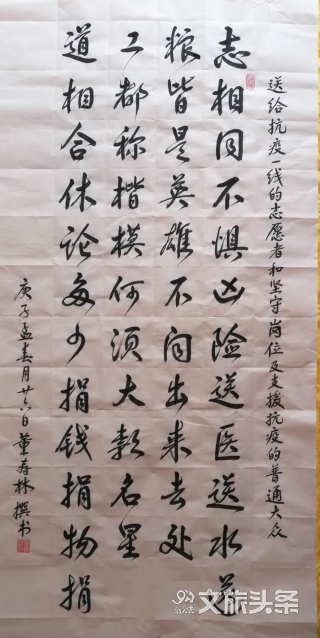 送给抗疫一线的志愿者和坚守岗位及支援抗疫的普通大众
志相同不惧凶险送医送水送
粮皆是英雄不问出来去处
工都称楷模何须大款名星
道相合休论多少捐钱捐物捐
庚子孟春月廿六日董寿林撰书
文旅头条